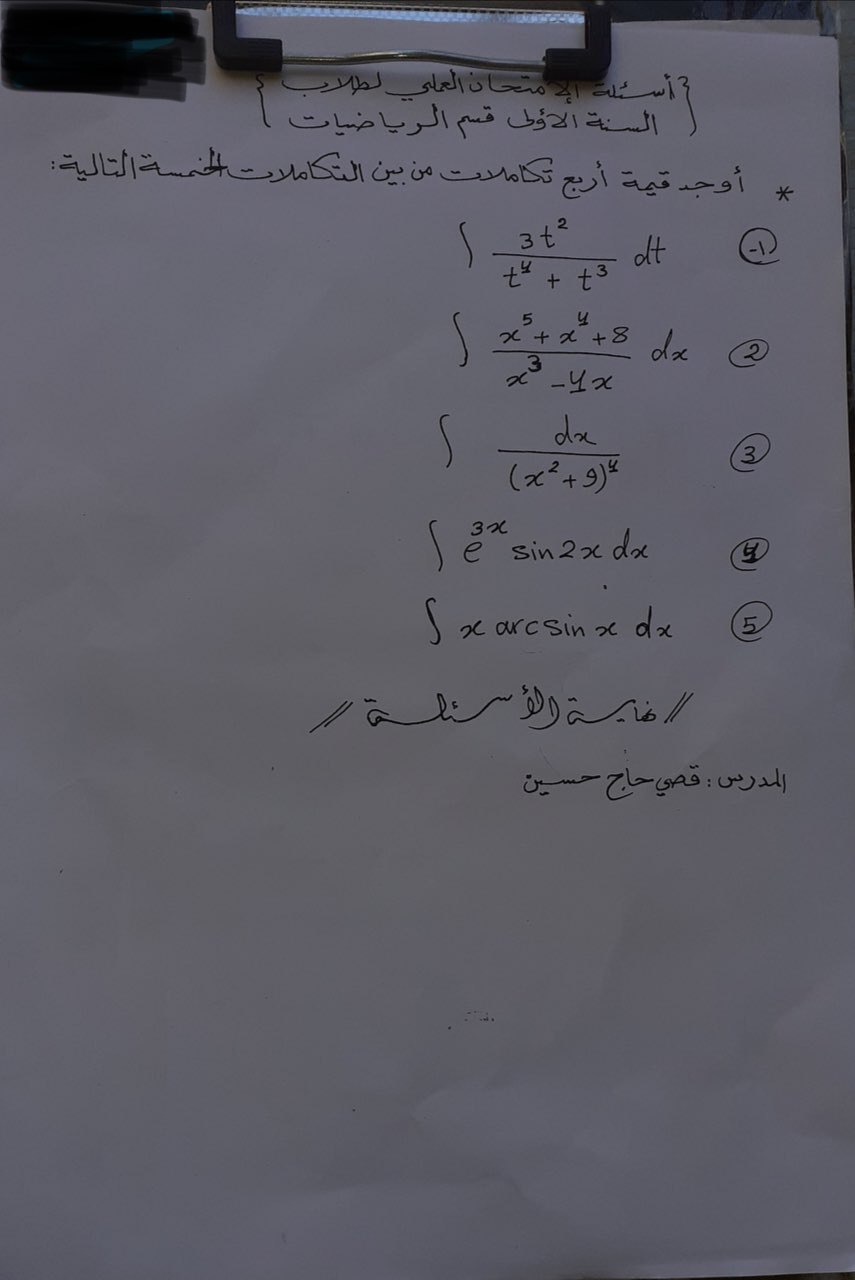 { أسئلة الإمتحان العملي لطلاب }
{ السنة الأولى قسم الرياضيات }
* أوجد قيمة أربع تكاملات من بين التكاملات الخمسة التالية:
-1 ∫ 3t² / (t⁴ + t³) dt
2 ∫ (x⁵ + x⁴ + 8) / (x³ - 4x) dx
3 ∫ dx / (x² + 9)⁴
4 ∫ e³ˣ sin2x dx
5 ∫ x arcsin x dx
// نهاية الأسئلة //
المدرس : قصي حاج حسين